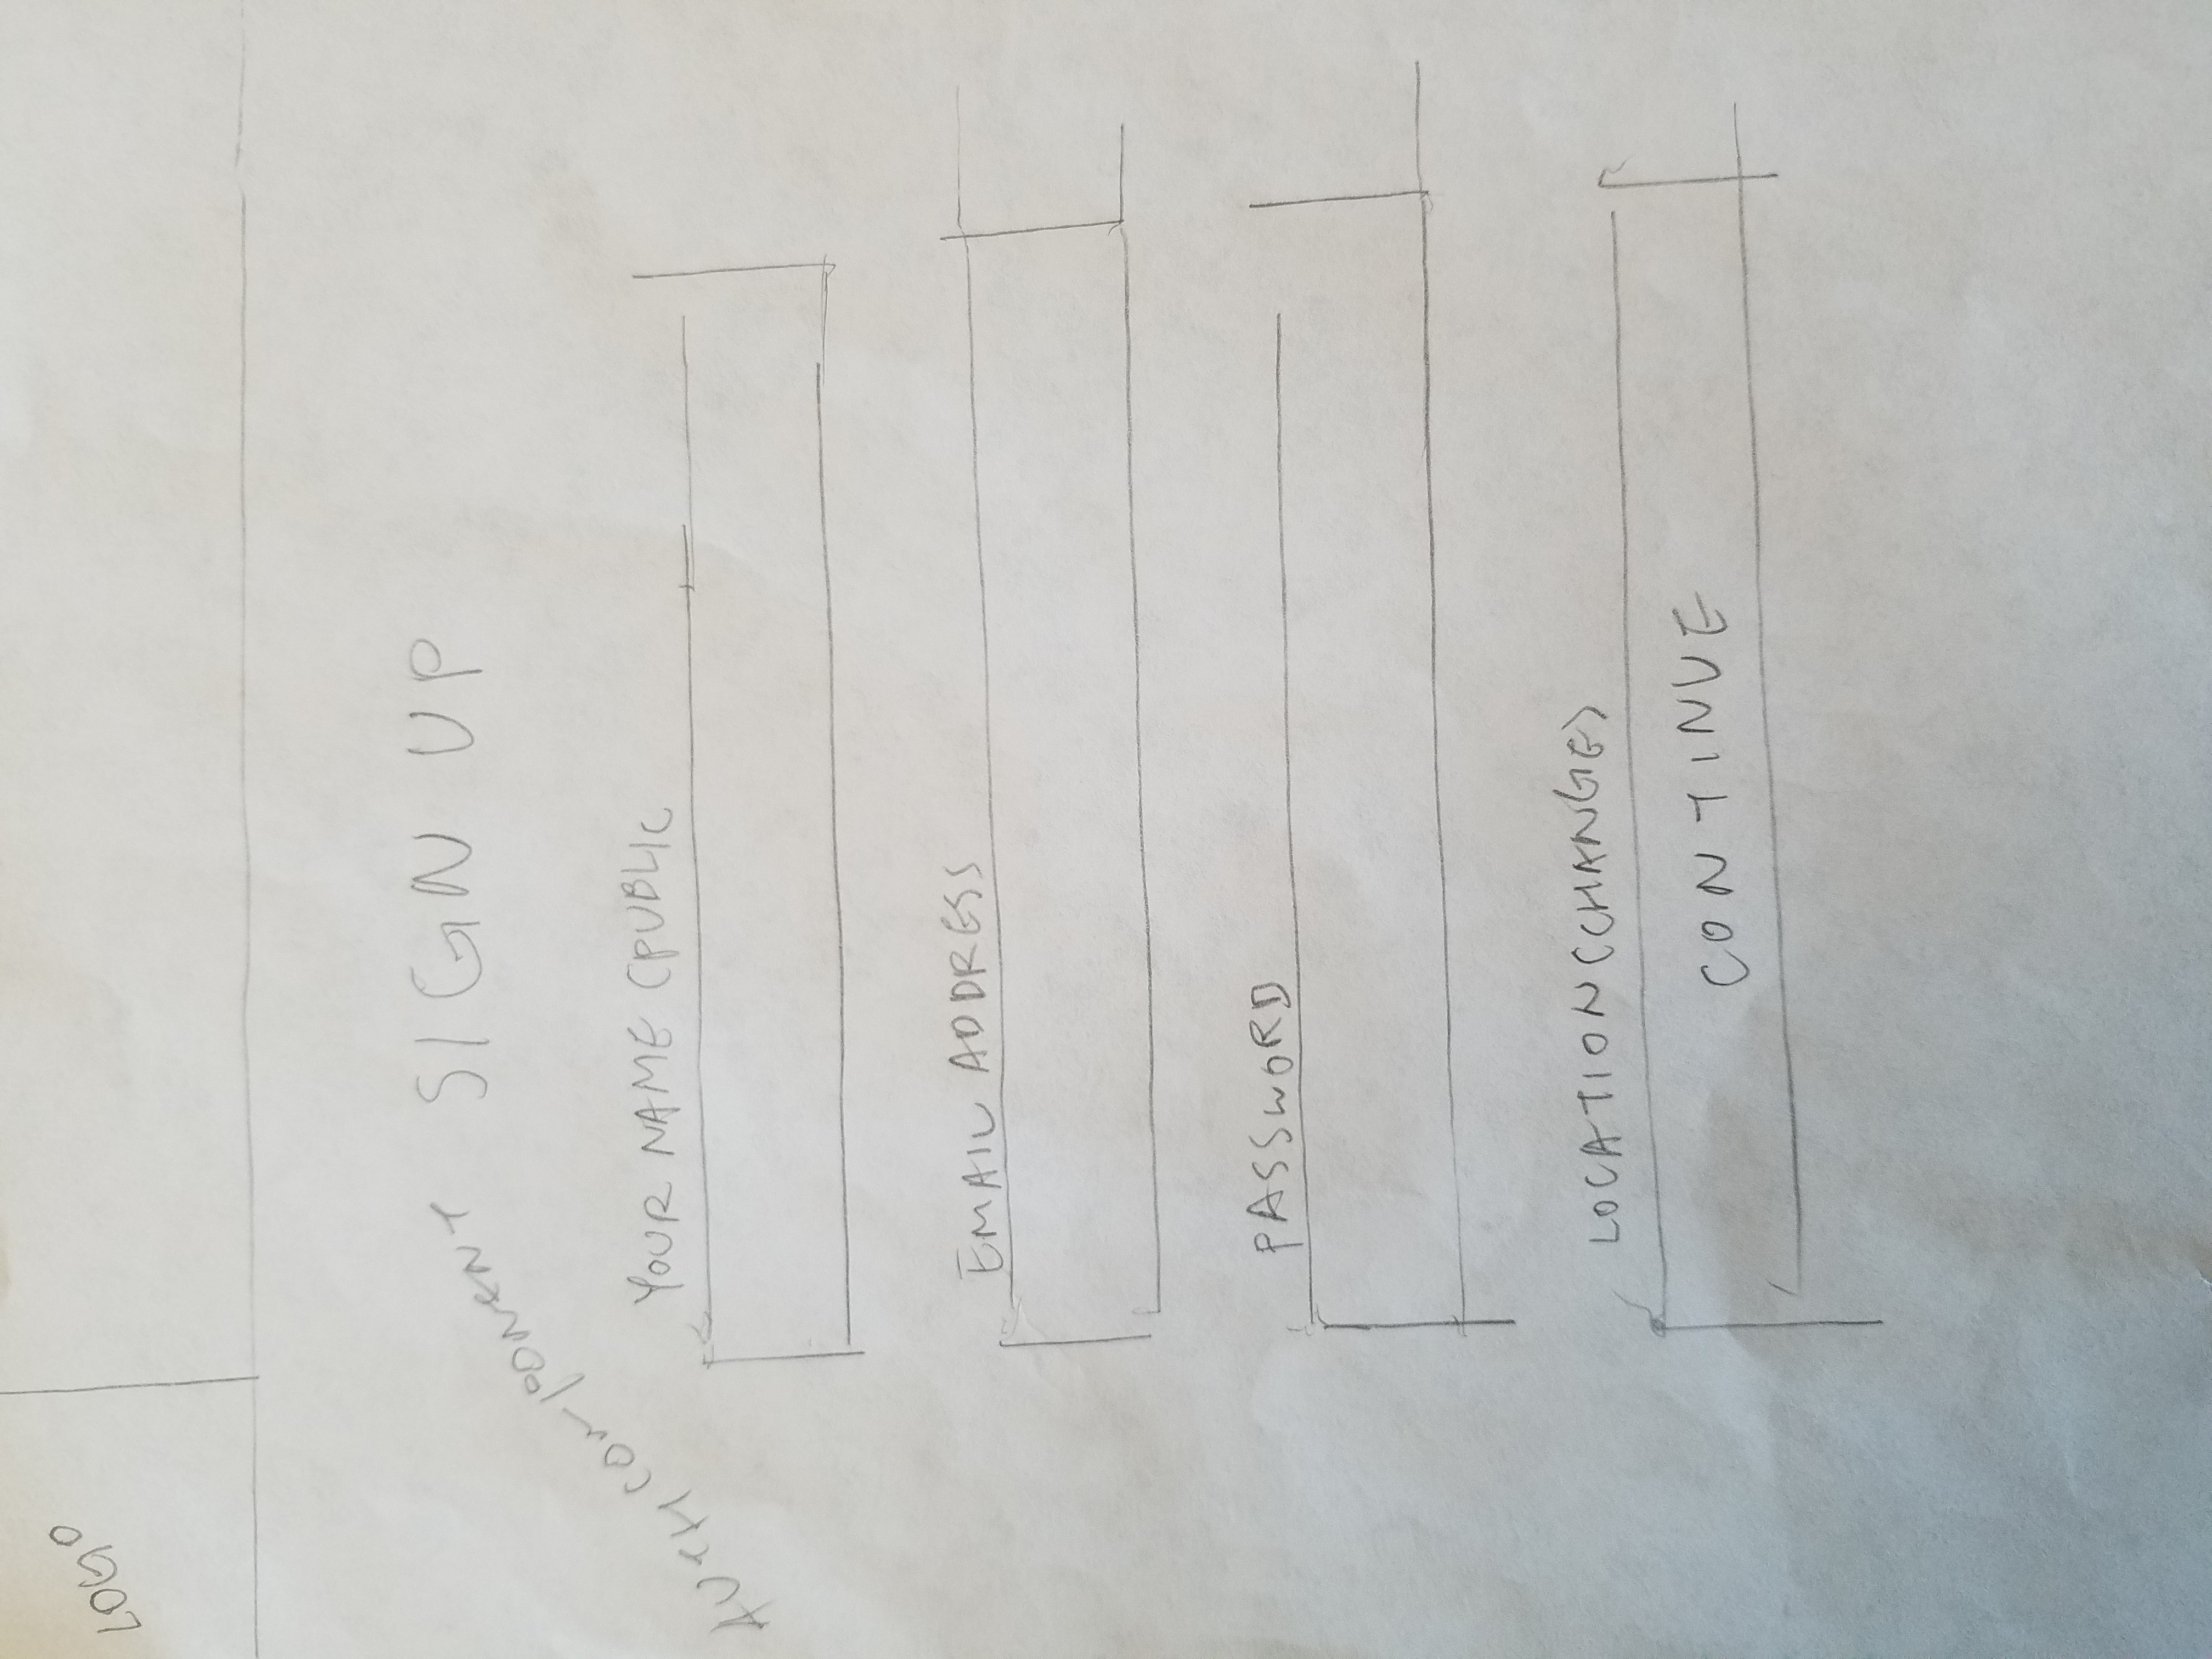 LOGO
AUTH COMPONENT
SIGN UP
YOUR NAME (PUBLIC
EMAIL ADDRESS
PASSWORD
LOCATION (CHANGE)
CONTINUE